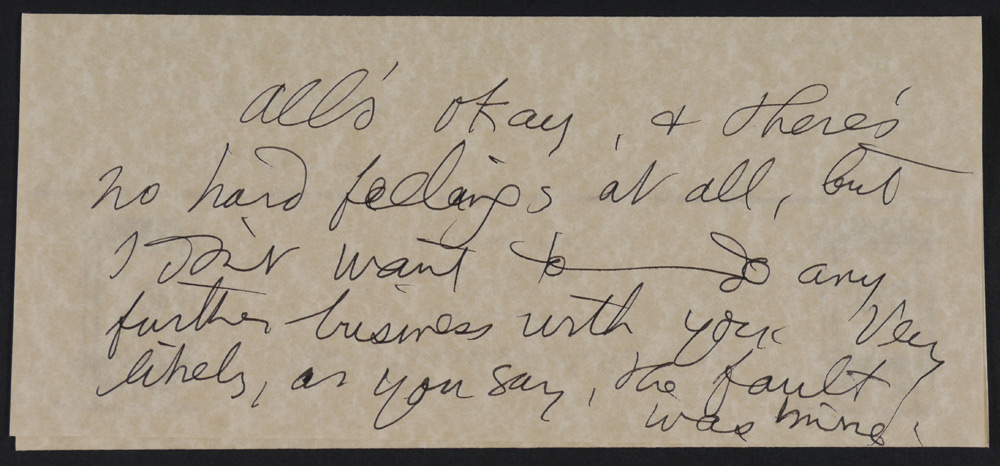 All's okay, & there's
no hard feelings at all, but
I don't want to do any
further business with you. Very
likely, as you say, the fault
was mine.